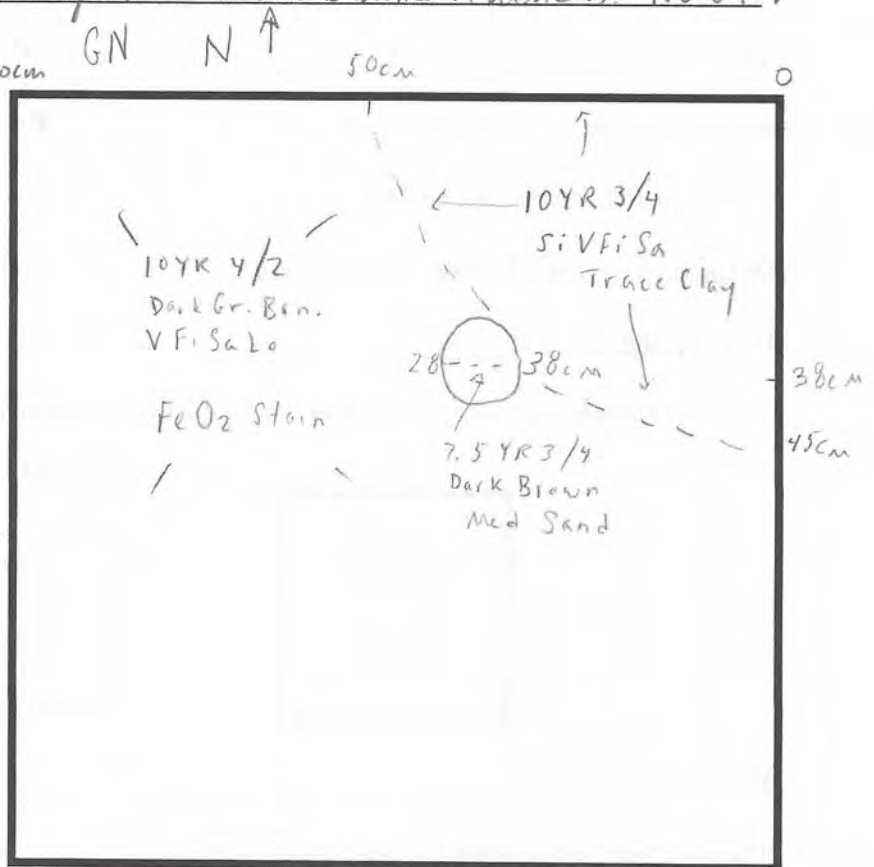 GN N
50cm
0
10YR 3/4
Si VFi Sa
Trace Clay
10YR 4/2
Dark Gr. Brn.
VFi Sa Lo
FeO2 Stain
28 38cm
38cm
45cm
7.5 YR 3/4
Dark Brown
Med Sand